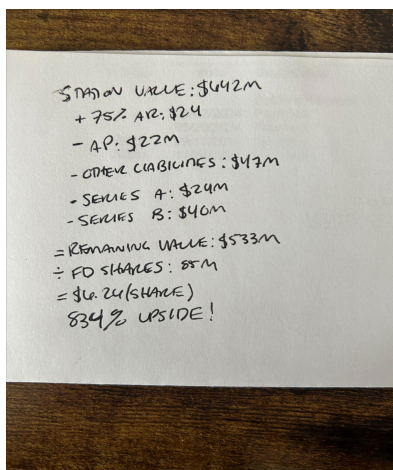 STATION VALUE: $642M
+ 75% AR: $24
- AP: $22M
- OTHER LIABILITIES: $47M
- SERIES A: $24M
- SERIES B: $40M
= REMAINING VALUE: $533M
÷ FD SHARES: 85M
= $6.24/SHARE)
834% UPSIDE!